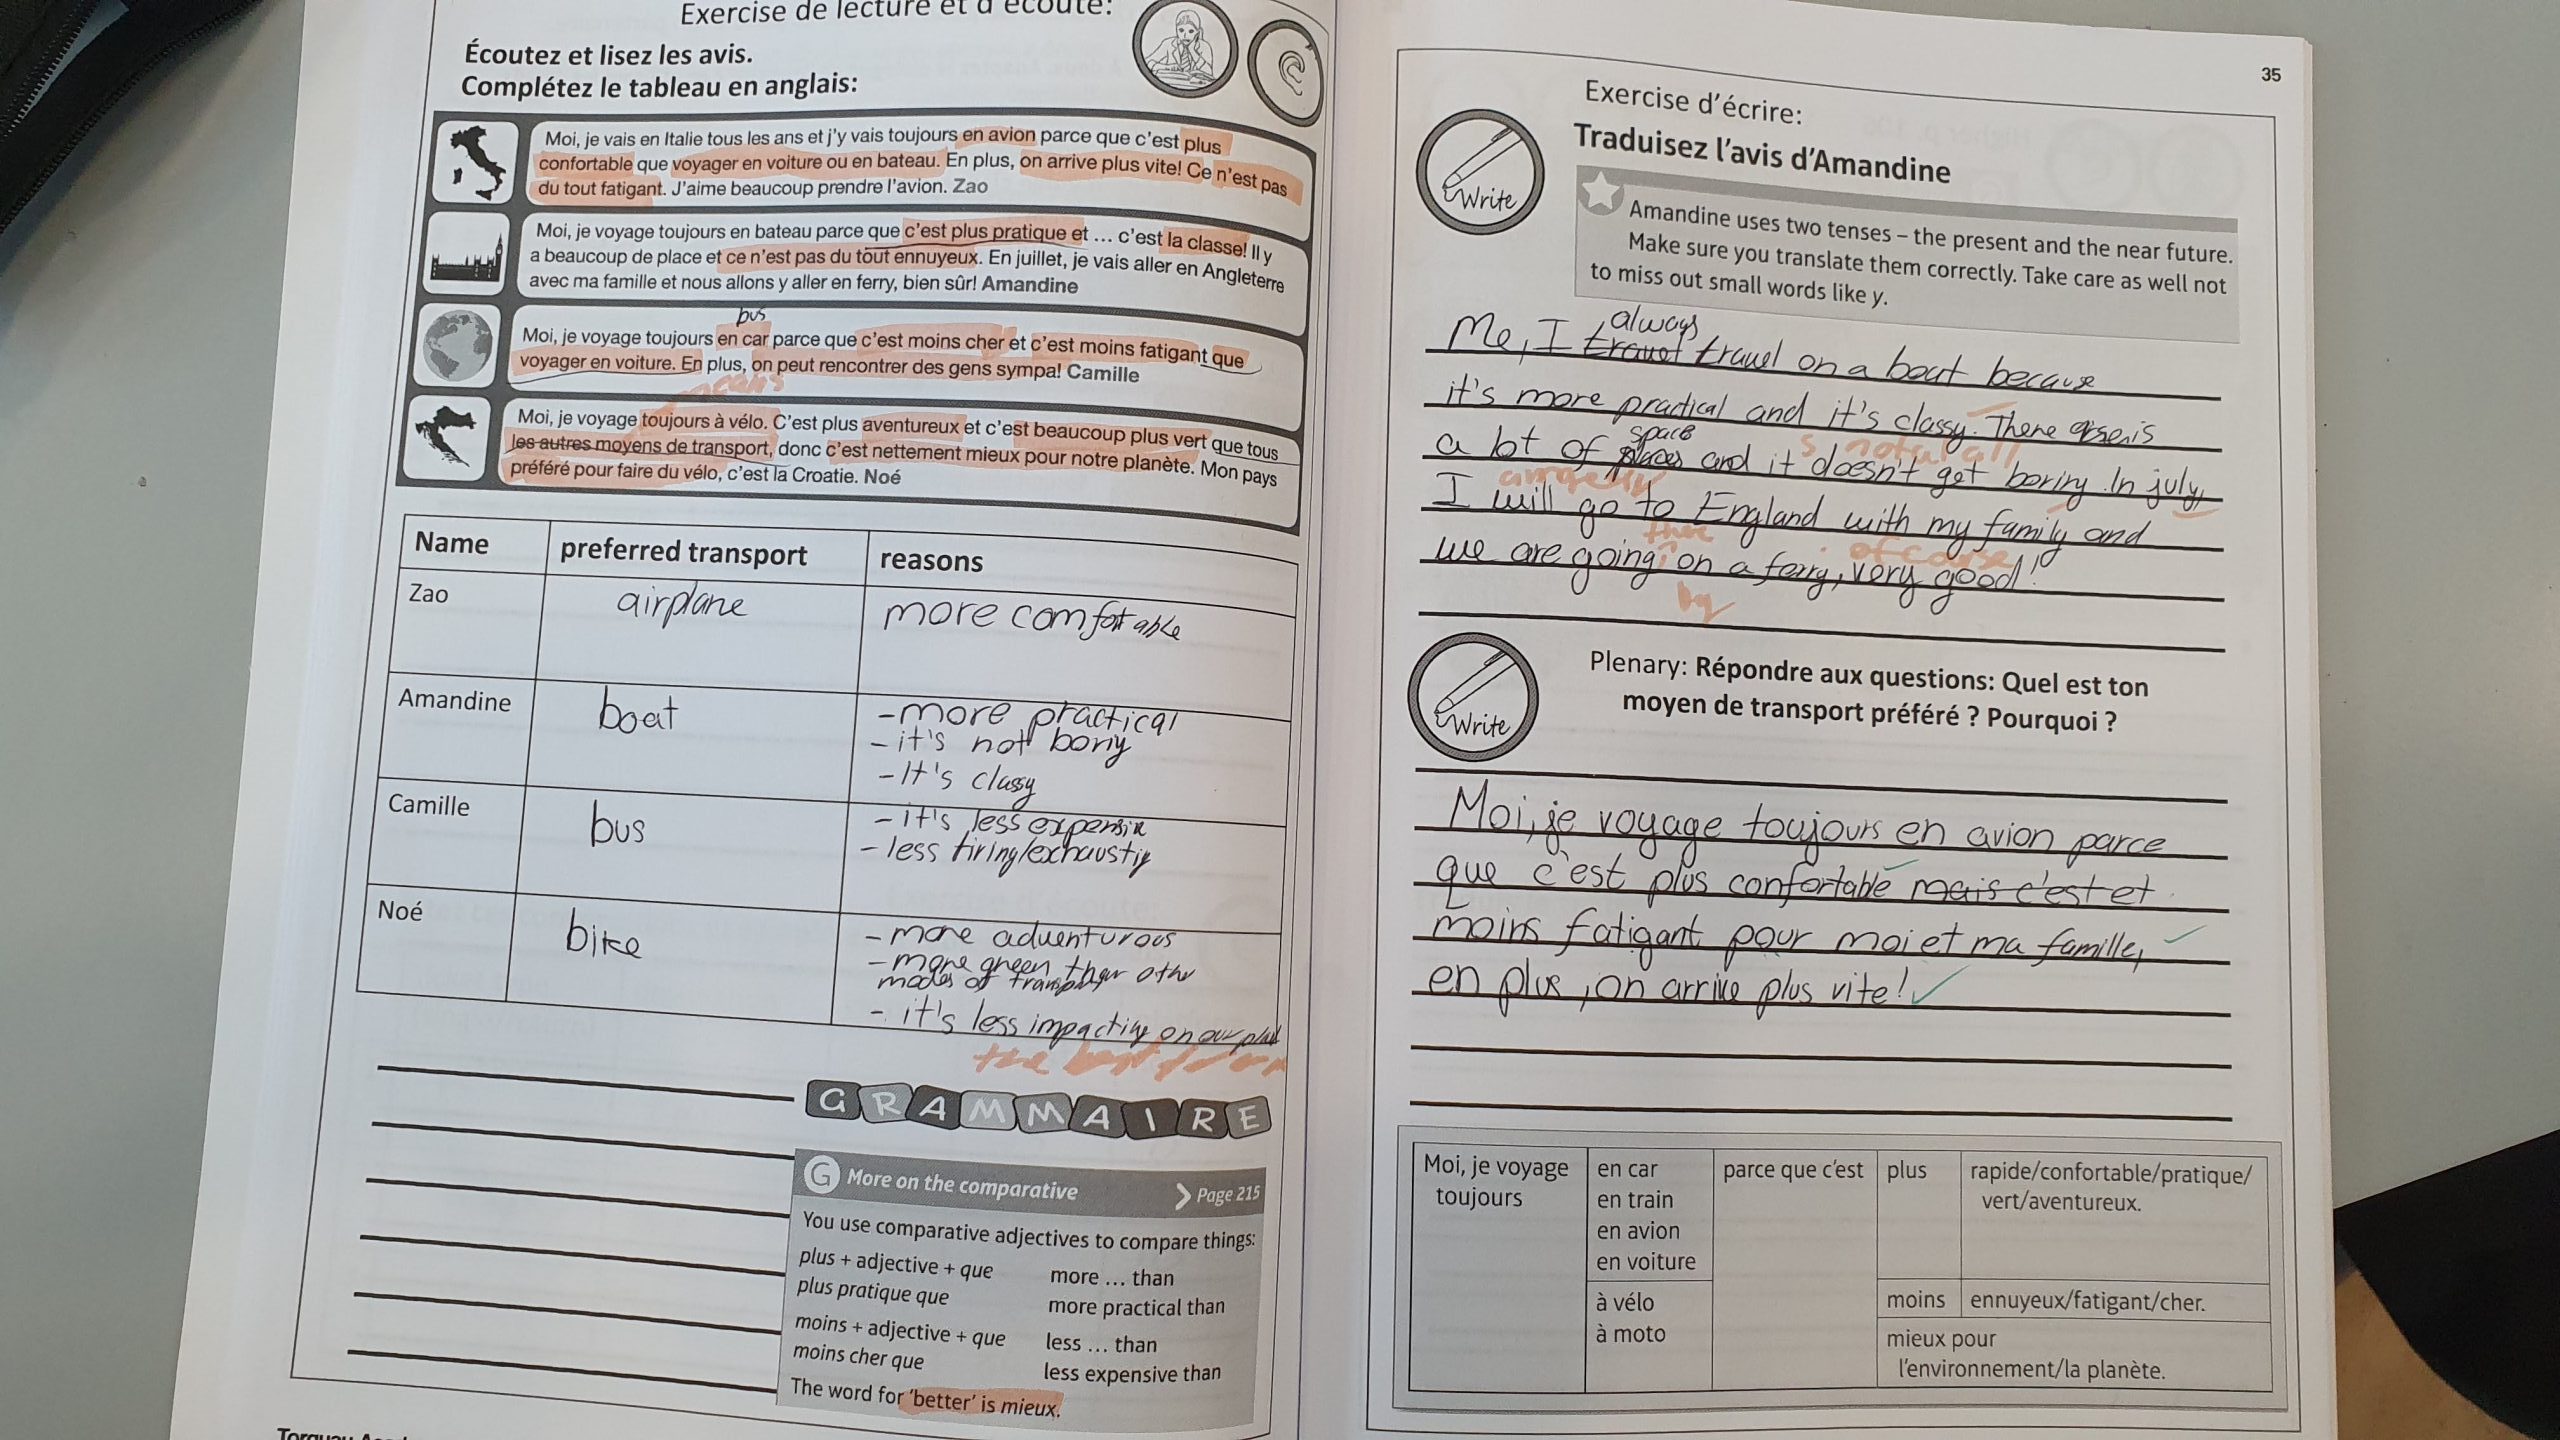 Exercise de lecture et d'écoute:
Écoutez et lisez les avis.
Complétez le tableau en anglais:
Moi, je vais en Italie tous les ans et j'y vais toujours en avion parce que c'est plus
confortable que voyager en voiture ou en bateau. En plus, on arrive plus vite! Ce n'est pas
du tout fatigant. J'aime beaucoup prendre l'avion. Zao
Moi, je voyage toujours en bateau parce que c'est plus pratique et ... c'est la classe! Il y
a beaucoup de place et ce n'est pas du tout ennuyeux. En juillet, je vais aller en Angleterre
avec ma famille et nous allons y aller en ferry, bien sûr! Amandine
bus
Moi, je voyage toujours en car parce que c'est moins cher et c'est moins fatigant que
voyager en voiture. En plus, on peut rencontrer des gens sympa! Camille
means
Moi, je voyage toujours à vélo. C'est plus aventureux et c'est beaucoup plus vert que tous
les autres moyens de transport, donc c'est nettement mieux pour notre planète. Mon pays
préféré pour faire du vélo, c'est la Croatie. Noé
Name preferred transport reasons
Zao airplane more comfortable
Amandine boat -more practical
-it's not boring
-It's classy
Camille bus -it's less expensive
-less tiring/exhausting
Noé bike -more adventurous
-more green than other
modes of transport
-it's less impacting on our planet
the best for our
GRAMMAIRE
G More on the comparative Page 215
You use comparative adjectives to compare things:
plus + adjective + que more ... than
plus pratique que more practical than
moins + adjective + que less ... than
moins cher que less expensive than
The word for 'better' is mieux.
35
Exercise d'écrire:
Traduisez l'avis d'Amandine
Write
Amandine uses two tenses – the present and the near future.
Make sure you translate them correctly. Take care as well not
to miss out small words like y.
always
Me, I travel travel on a boat because
it's more practical and it's classy. There is
space s not at all
a lot of places and it doesn't get boring. In july,
am going
I will go to England with my family and
there of course
we are going on a ferry, very good!
by
Write
Plenary: Répondre aux questions: Quel est ton
moyen de transport préféré ? Pourquoi ?
Moi, je voyage toujours en avion parce
que c'est plus confortable mais c'est et
moins fatigant pour moi et ma famille,
en plus, on arrive plus vite!
Moi, je voyage toujours
en car
en train
en avion
en voiture
à vélo
à moto
parce que c'est
plus
rapide/confortable/pratique/
vert/aventureux.
moins ennuyeux/fatigant/cher.
mieux pour
l'environnement/la planète.